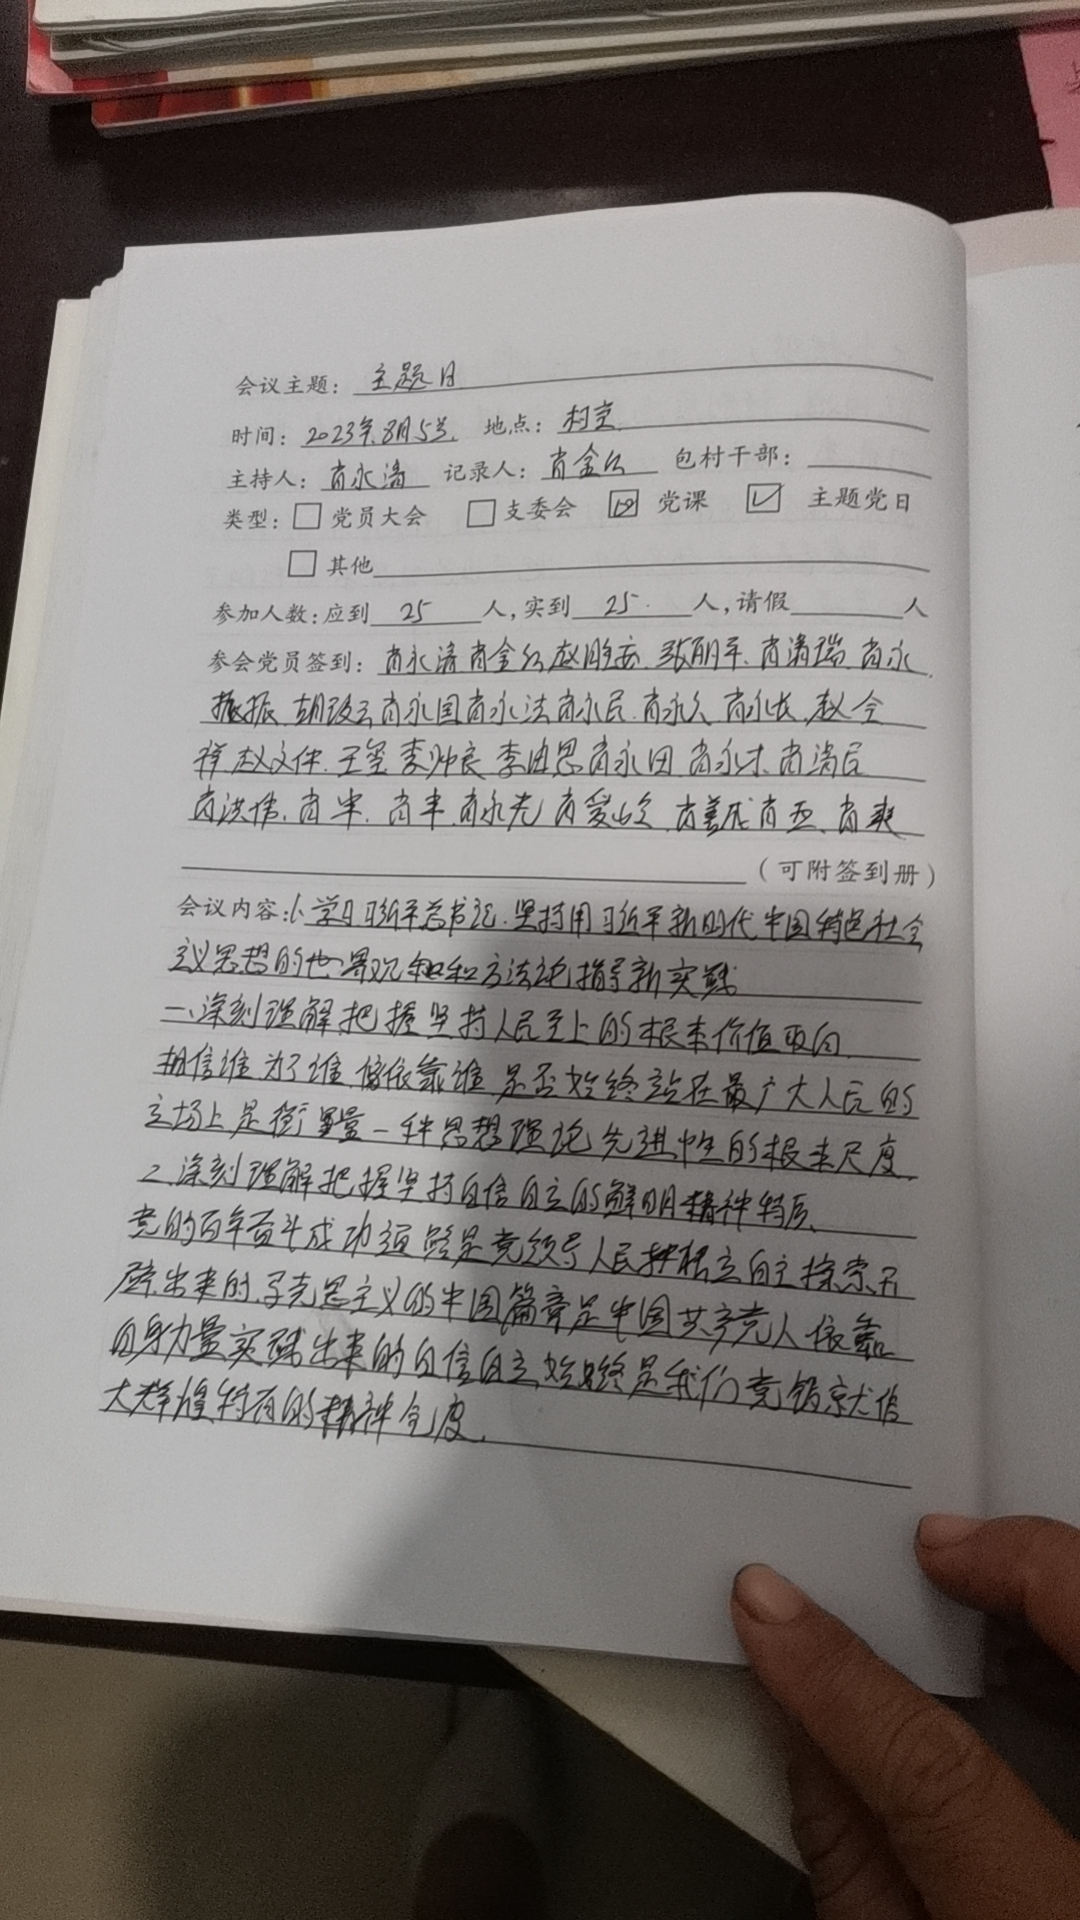 会议主题: 主题日
时间: 2023年8月5号. 地点: 村室
主持人: 肖永涛 记录人: 肖金 包村干部:
类型: 党员大会 支委会 党课 主题党日
其他
参加人数:应到 25 人,实到 25 人,请假 人
参会党员签到: 肖永涛 肖金 赵 张朋军 肖清瑞 肖永
振 胡 肖永国 肖永法 肖永民 肖永久 肖永长 赵全
祥 赵文件 王玺 李帅良 李由恩 肖永田 肖永才 肖清民
肖洪伟 肖军 肖丰 肖永先 肖爱 肖善成 肖亚 肖爽
(可附签到册)
会议内容: 学习习近平总书记.坚持用习近平新时代中国特色社会
主义思想的世界观和方法论指导新实践
一、深刻理解把握坚持人民至上的根本价值取向
相信谁 为了谁 依靠谁 是否始终站在最广大人民的
立场上是衡量一种思想理论先进性的根本尺度.
2.深刻理解把握坚持自信自立的鲜明精神特质
党的百年奋斗成功道路是党领导人民独立自主探索开
辟出来的,马克思主义的中国篇章是中国共产党人依靠
自身力量实践出来的 自信自立始终是我们党
特有的精神